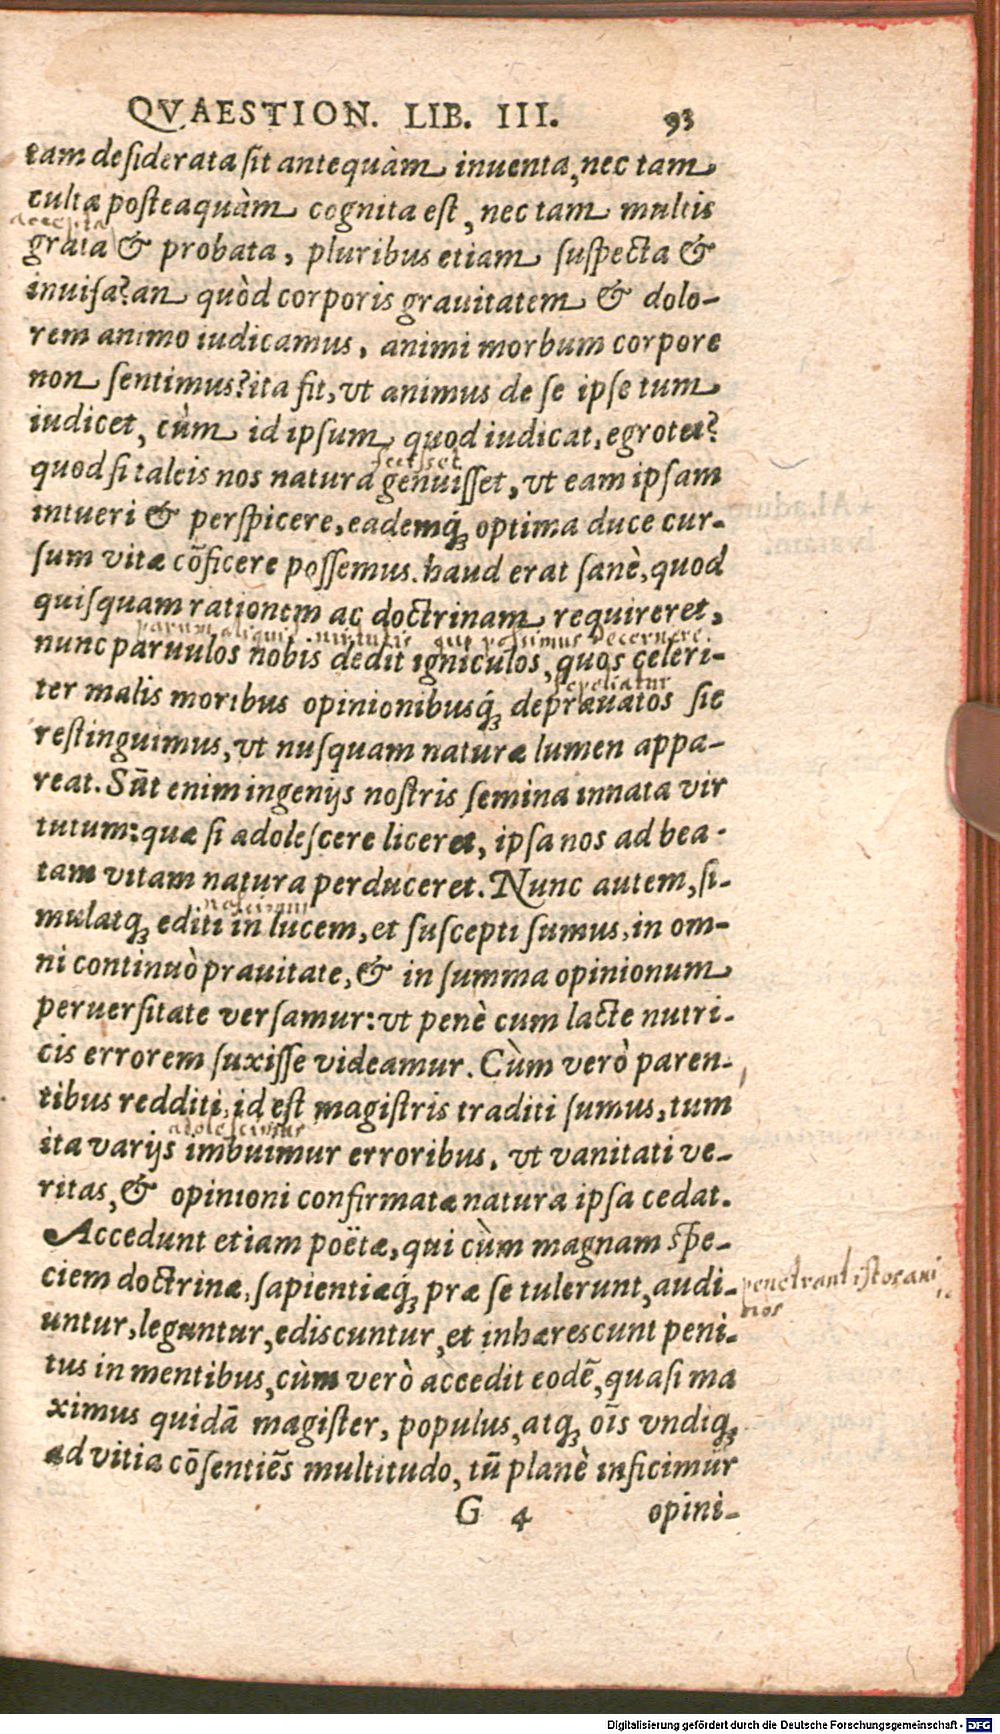 QVAESTION. LIB. III. 93
tam desiderata sit antequàm inuenta, nec tam
culta posteaquàm cognita est, nec tam multis
accepta
grata & probata, pluribus etiam suspecta &
inuisa? an quòd corporis grauitatem & dolo-
rem animo iudicamus, animi morbum corpore
non sentimus? ita fit, vt animus de se ipse tum
iudicet, cùm id ipsum quod iudicat, egrotet?
fecisset
quod si taleis nos natura genuisset, vt eam ipsam
intueri & perspicere, eademq́; optima duce cur-
sum vitæ cõficere possemus. haud erat sanè, quod
quisquam rationem ac doctrinam requireret,
parum aliquid virtutis quo possimus decernere.
nunc paruulos nobis dedit igniculos, quos celeri-
sepeliatur
ter malis moribus opinionibusq́; deprauatos sic
restinguimus, vt nusquam naturæ lumen appa-
reat. Sũt enim ingenijs nostris semina innata vir
tutum: quæ si adolescere liceret, ipsa nos ad bea-
tam vitam natura perduceret. Nunc autem, si-
nascimur
mulatq; editi in lucem, et suscepti sumus, in om-
ni continuò prauitate, & in summa opinionum
peruersitate versamur: vt penè cum lacte nutri-
cis errorem suxisse videamur. Cùm verò paren-
tibus redditi, id est magistris traditi sumus, tum
adolescimus
ita varijs imbuimur erroribus, vt vanitati ve-
ritas, & opinioni confirmatæ natura ipsa cedat.
Accedunt etiam poëtæ, qui cùm magnam spe-
ciem doctrinæ, sapientiæq́; præ se tulerunt, audi-
penetrant istos ani
mos
untur, leguntur, ediscuntur, et inhærescunt peni-
tus in mentibus, cùm verò accedit eodẽ, quasi ma
ximus quidã magister, populus, atq; oĩs vndiq;
ad vitia cõsentiẽs multitudo, tũ planè inficimur
G 4 opini-
Digitalisierung gefördert durch die Deutsche Forschungsgemeinschaft - DFG